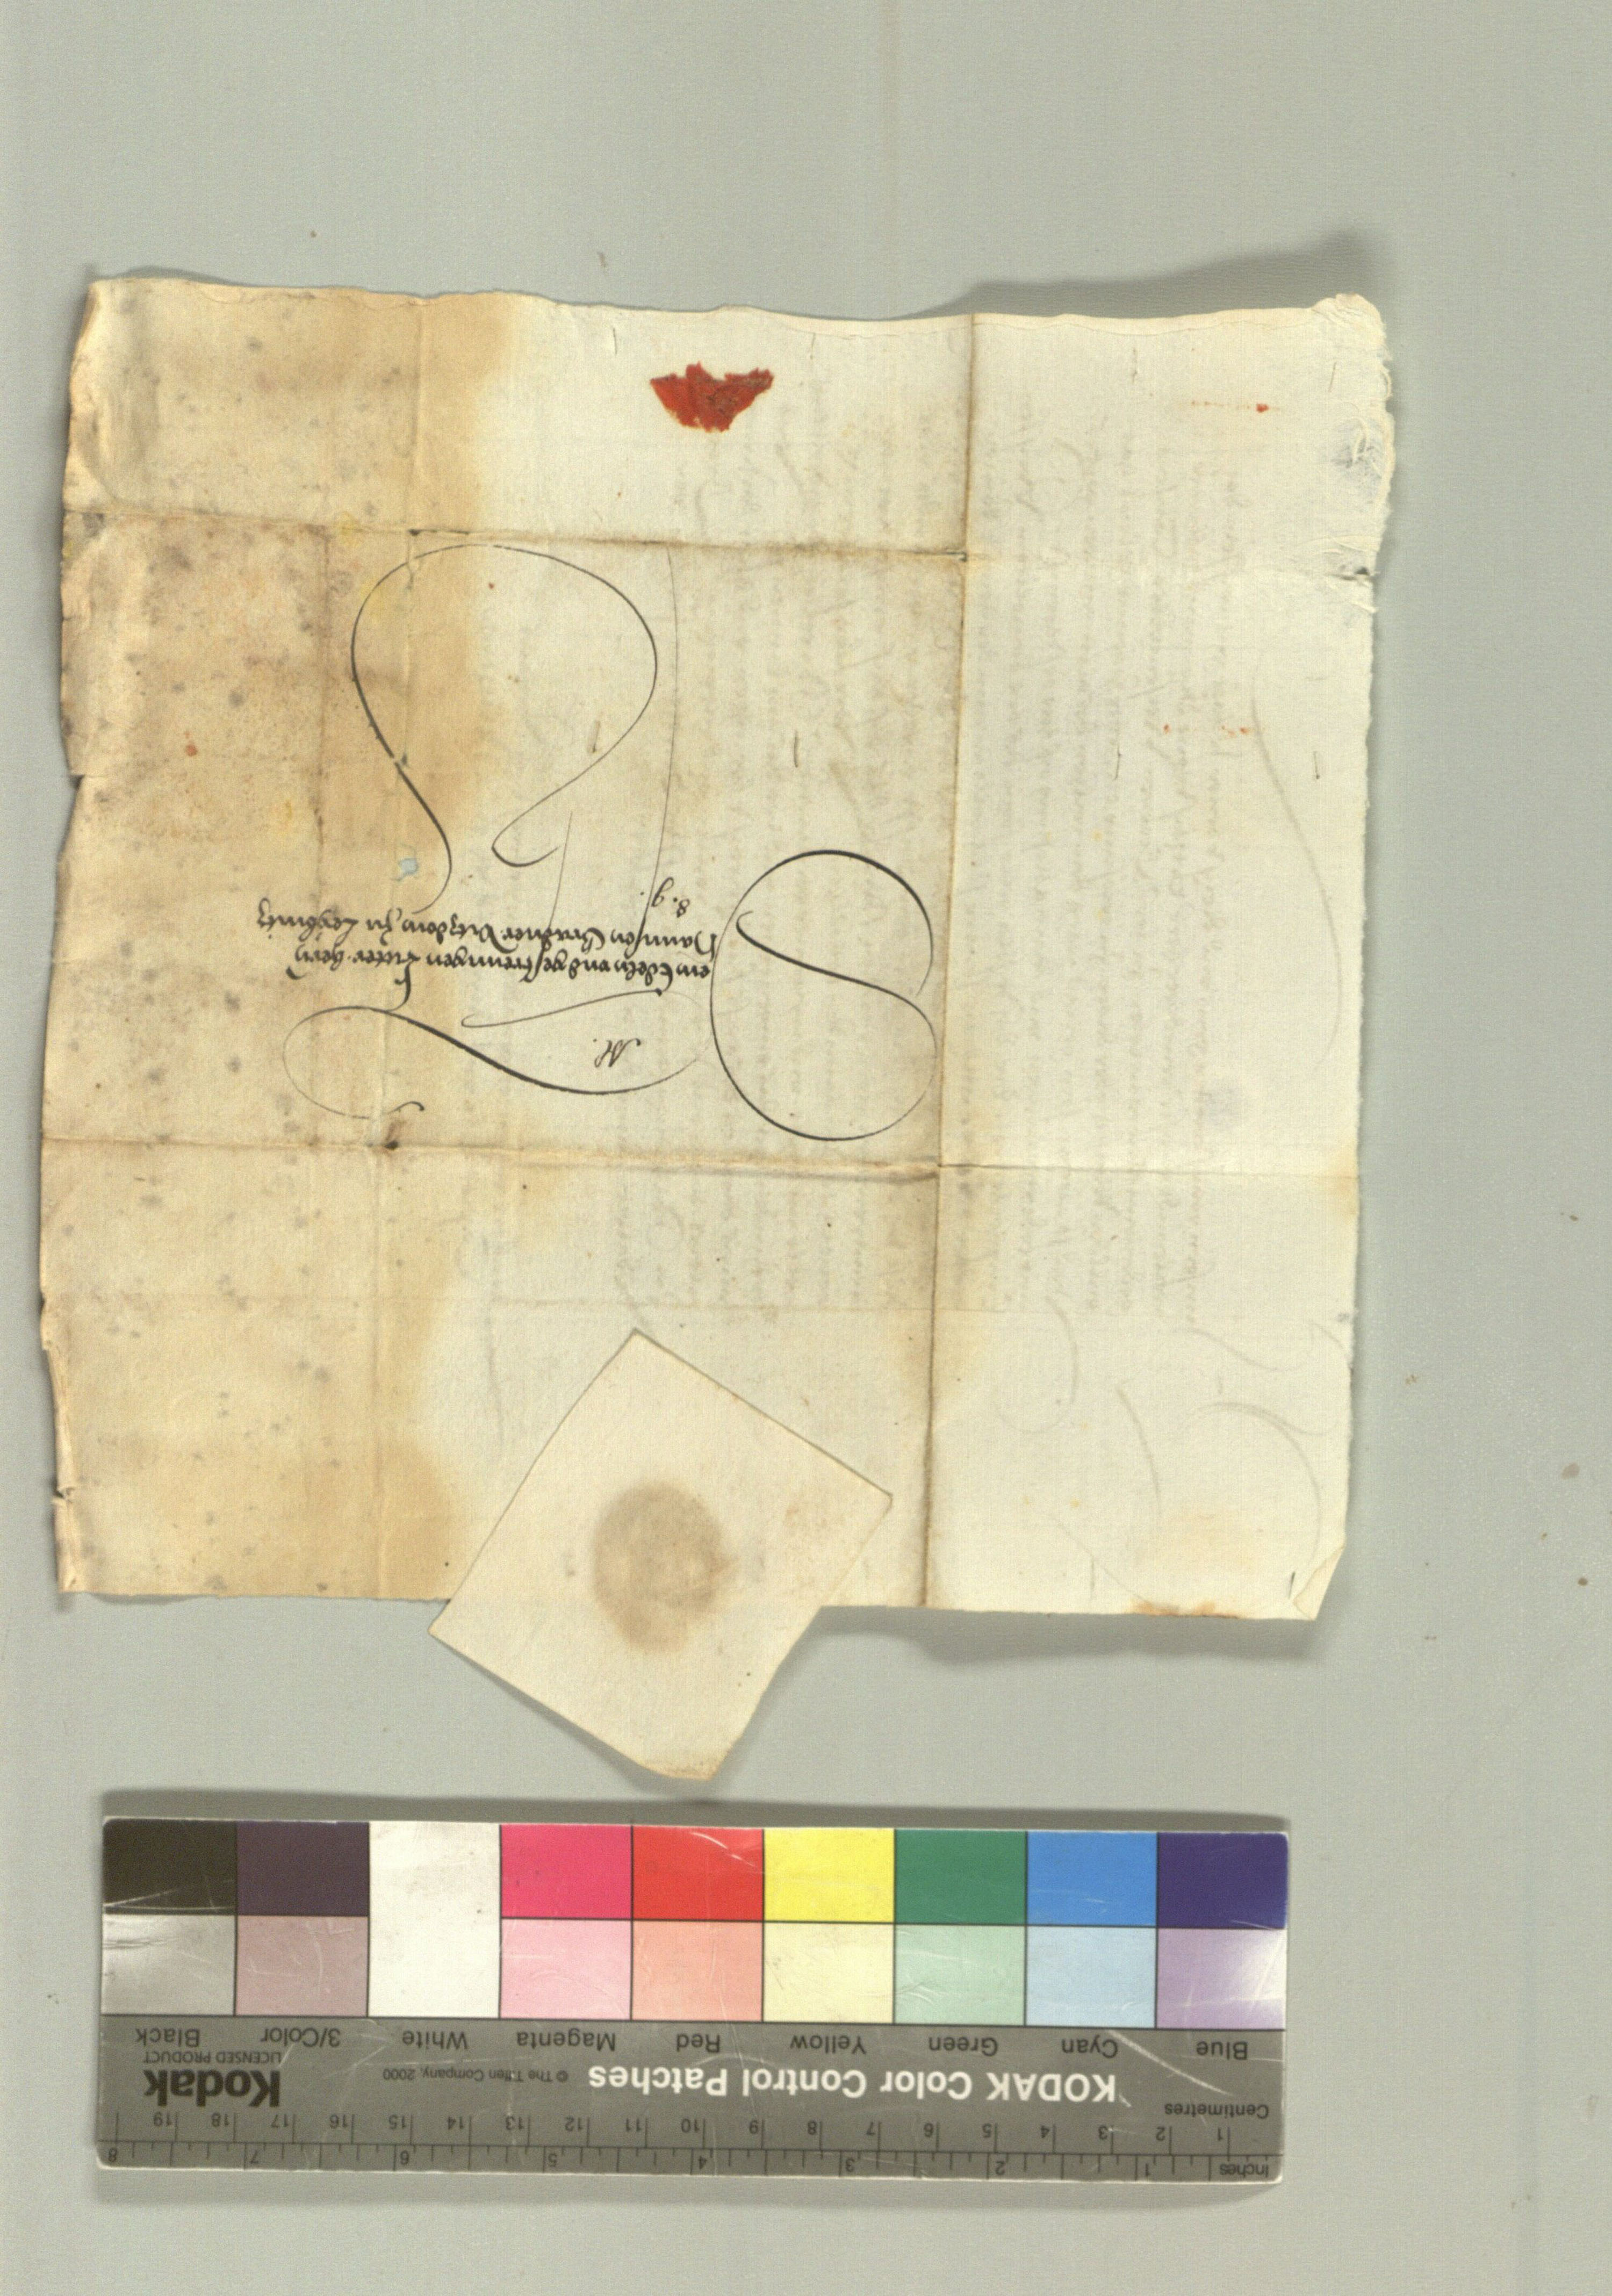 M.
Dem Edeln vnd gestrenngen Ritter hern
Hannsen Gradner Vitzdom zu Leybnitz
g.
Blue
Cyan
Green
Yellow
Red
Magenta
White
3/Color
Black
KODAK Color Control Patches
© The Tiffen Company, 2000
Kodak
LICENSED PRODUCT
Centimetres
1 2 3 4 5 6 7 8 9 10 11 12 13 14 15 16 17 18 19
Inches
1 2 3 4 5 6 7 8